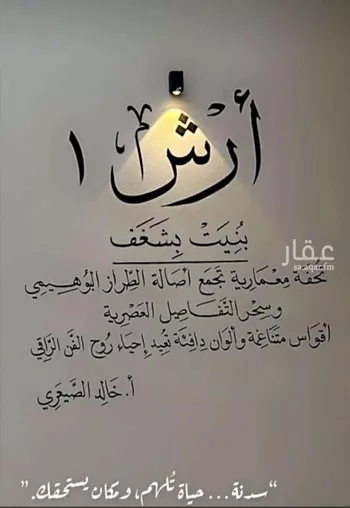 أرش ١
بُنِيَتْ بِشَغَف
عقار
sa.aqar.fm
تحفة مِعْمارية تَجمَع أصالة الطّراز البُوهِيمي
وسِحْر التَّفاصِيل العَصْرِية
أقواس مُتَناغِمة وألوان دافِئة تُعِيد إحيَاء رُوح الفَنّ الرَّاقي
أ. خَالِد الصَّيْعَرِي
“سدنة... حياة تُلهم، ومكان يستحقك.”